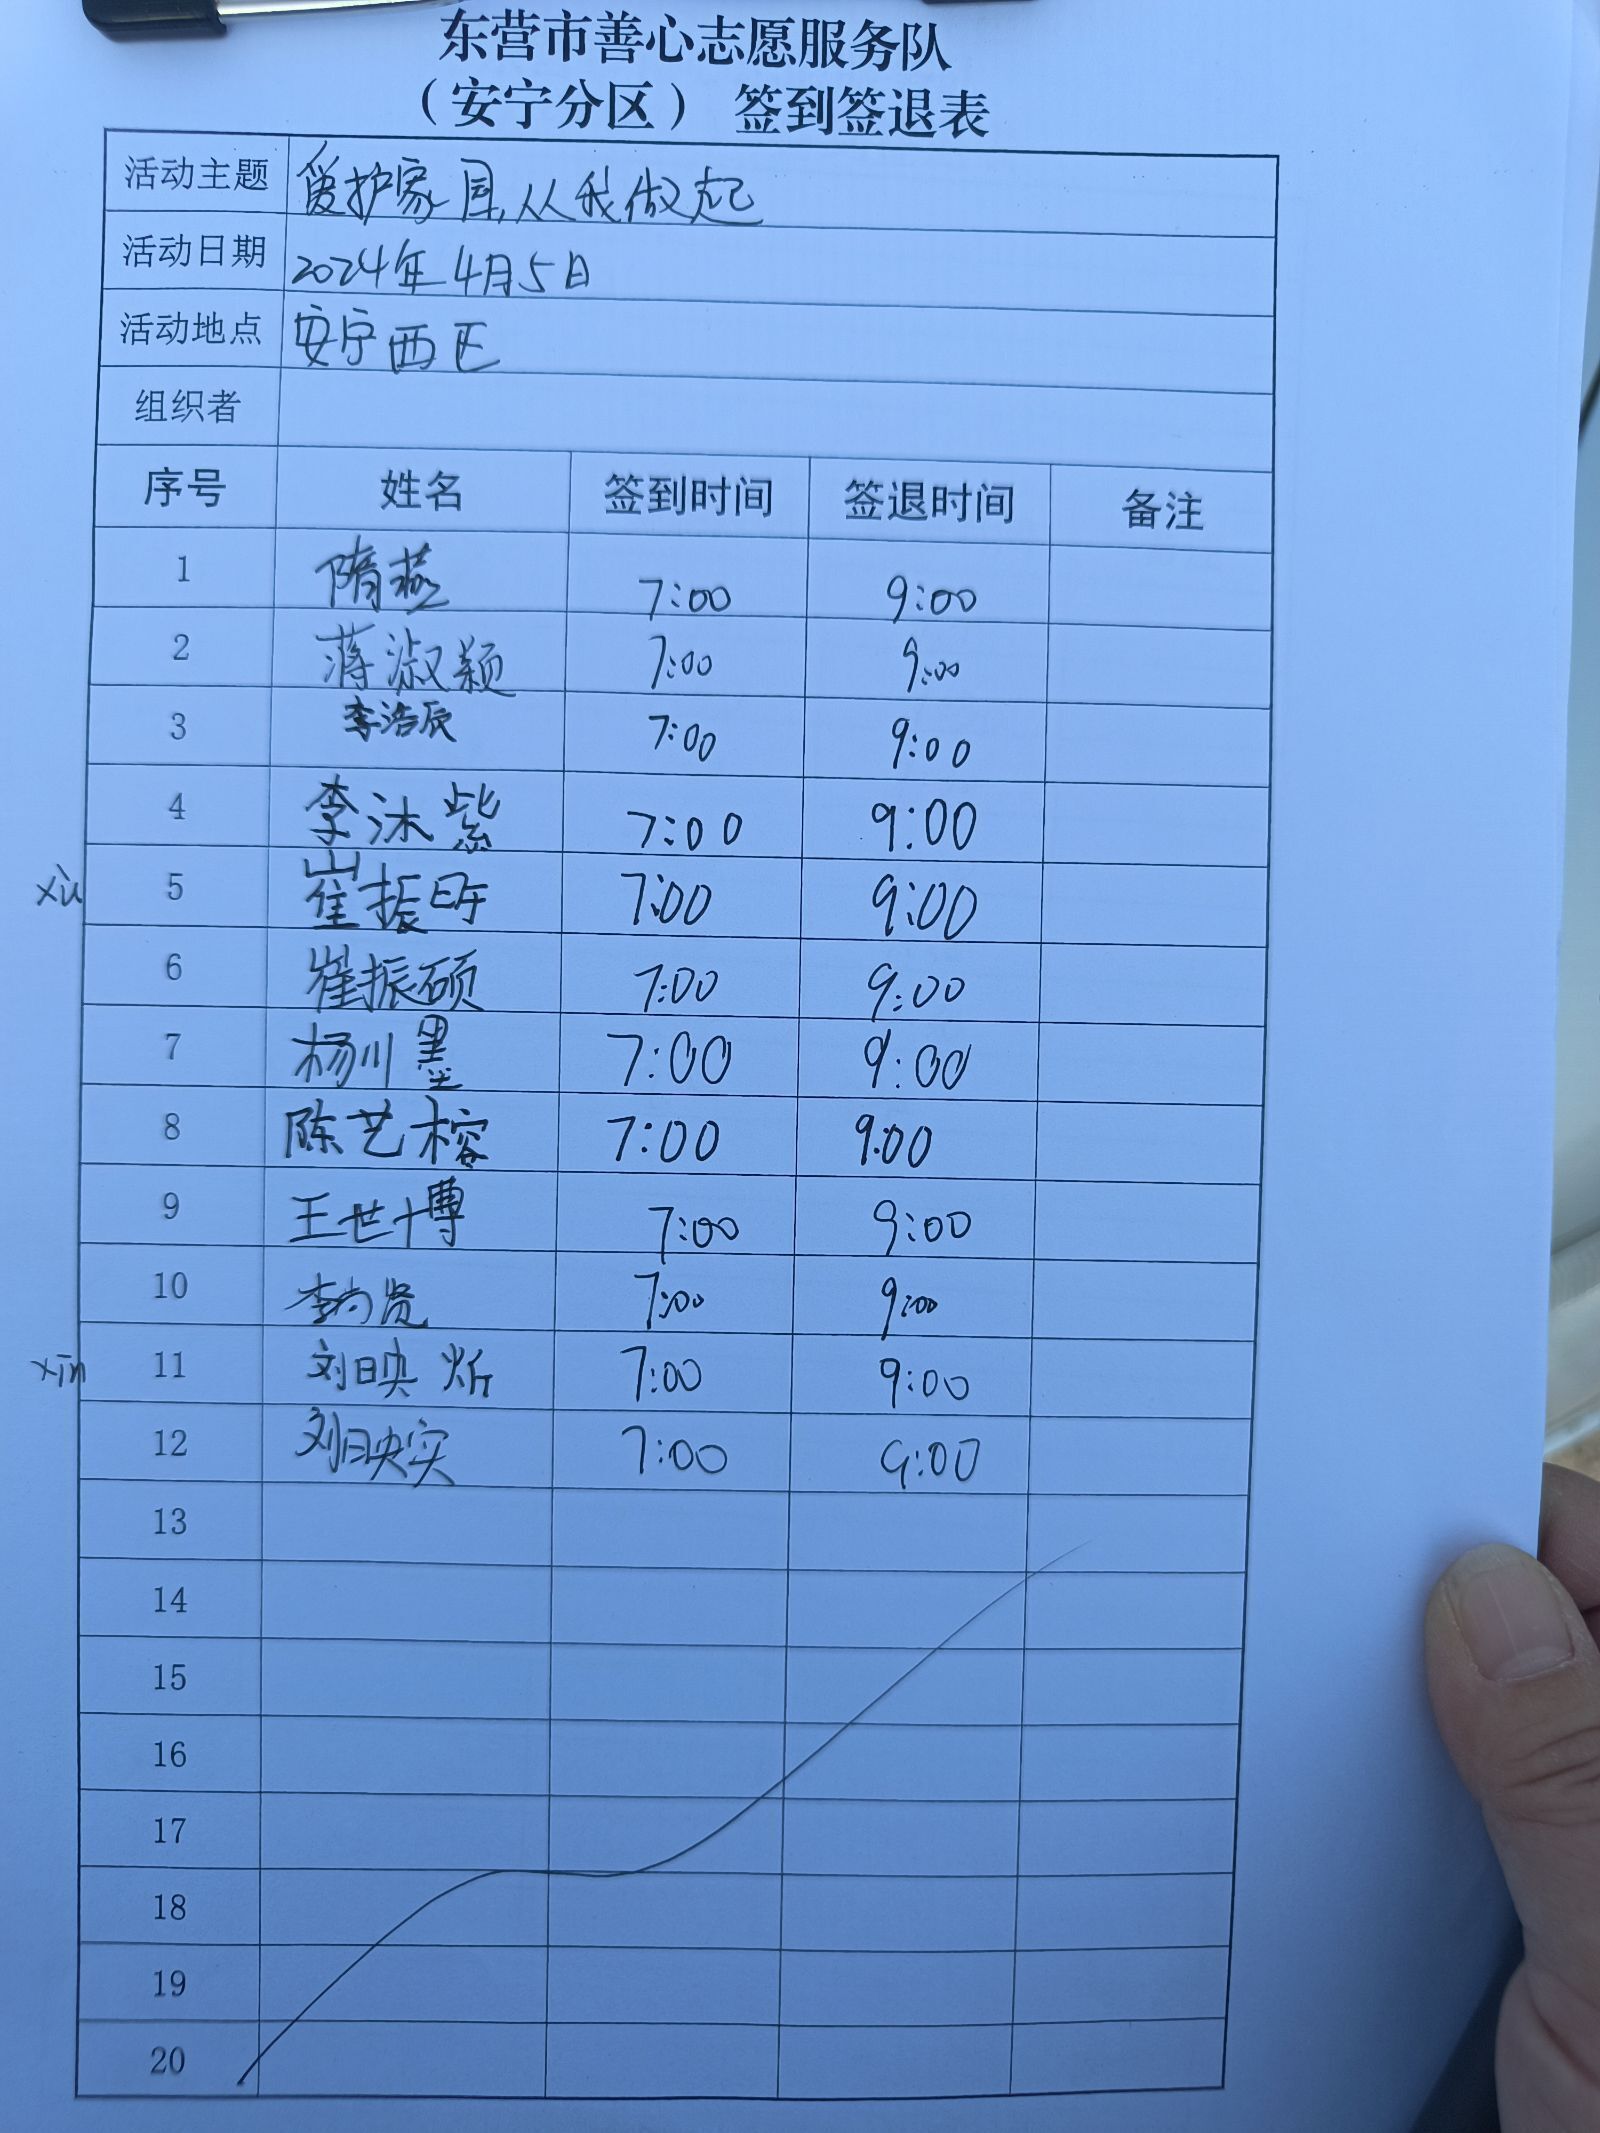 东营市善心志愿服务队
（安宁分区） 签到签退表
活动主题 爱护家园,从我做起
活动日期 2024年4月5日
活动地点 安宁西区
组织者
序号 姓名 签到时间 签退时间 备注
1 隋燕 7:00 9:00
2 蒋淑颖 7:00 9:00
3 李浩辰 7:00 9:00
4 李沐紫 7:00 9:00
xù 5 崔振昕 7:00 9:00
6 崔振硕 7:00 9:00
7 杨川墨 7:00 9:00
8 陈艺榕 7:00 9:00
9 王世博 7:00 9:00
10 李尚贤 7:00 9:00
xīn 11 刘映炘 7:00 9:00
12 刘映实 7:00 9:00
13
14
15
16
17
18
19
20